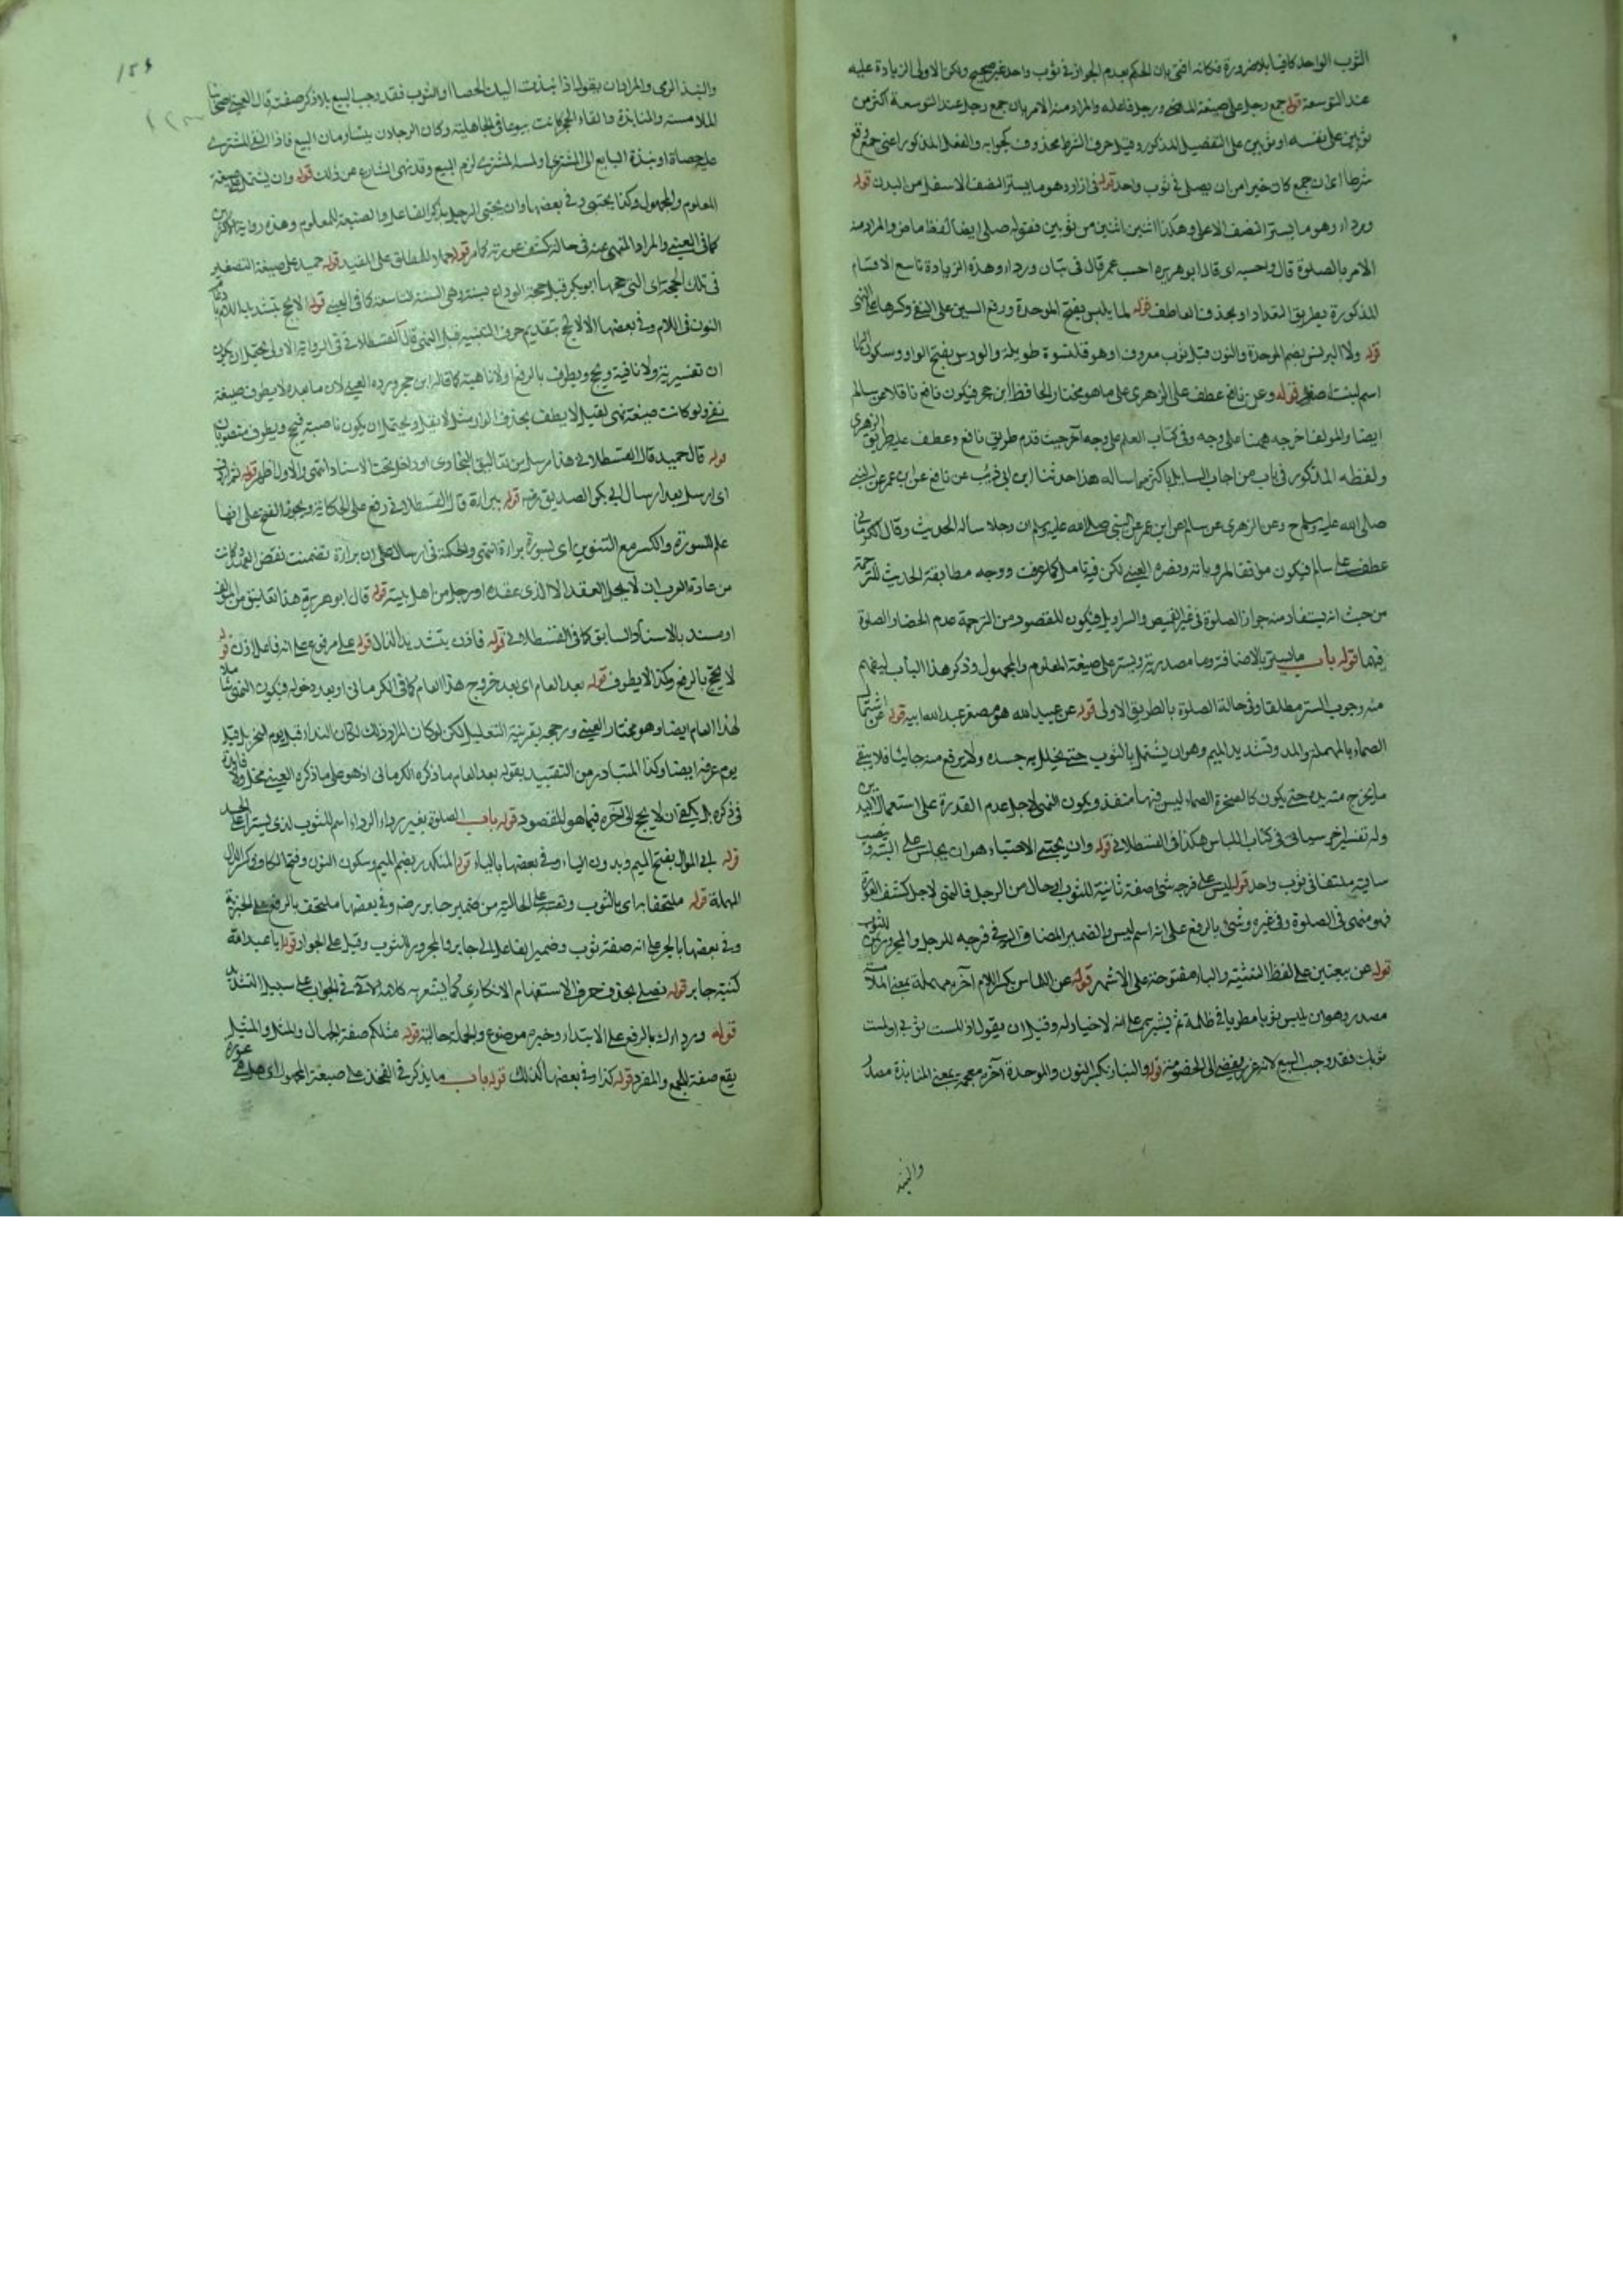 الثوب الواحد كافيا بلا ضرورة فكانه افتى بان الحكم بعدم الجواز في ثوب واحد غير صحيح ولكن الاولى الزيادة عليه
عند التوسعة قوله جمع رجل على صيغة الماضي ورجل فاعله والمراد منه الامر بان جمع رجل عند التوسعة اكثر من
ثوبين على نفسه او ثوبين على التفصيل المذكور وقيل حرف الشرط محذوف كجوابه والفعل المذكور اعني جمع وقع
شرطا اي ان جمع كان خيرا من ان يصلى في ثوب واحد قوله في ازار وهو ما يستر النصف الاسفل من البدن قوله
ورداء وهو ما يستر النصف الاعلى وهكذا اثنين اثنين من ثوبين فقوله صلى ايضا لفظ ماض والمراد منه
الامر بالصلوة قال واحسبه اى قال ابو هريرة احسب عمر قال في تبان ورداء وهذه الزيادة تاسع الاقسام
المذكورة بطريق التعداد او بحذف العاطف قوله لما يلبس بفتح الموحدة ورفع السين على النفي وكسرها على النهي
قوله ولا البرنس بضم الموحدة والنون قيل ثوب معروف او هو قلنسوة طويلة والورس بفتح الواو وسكون الراء
اسم لنبت اصفر قوله وعن نافع عطف على الزهرى على ما هو مختار الحافظ ابن حجر فيكون نافع ناقلا عن سالم
ايضا والمولف اخرجه ههنا على وجه وفي كتاب العلم على وجه آخر حيث قدم طريق نافع وعطف عليه طريق الزهرى
ولفظه المذكور في باب من اجاب السايل باكثر مما ساله هذا حدثنا ابن ابي ذئب عن نافع عن ابن عمر عن النبي
صلى الله عليه وسلم ح وعن الزهرى عن سالم عن ابن عمر عن النبي صلى الله عليه وسلم ان رجلا ساله الحديث وقال الكرماني
عطف على سالم فيكون معلقا المروياته ونصره العيني لكن فيه تامل كما عرفت ووجه مطابقة الحديث للترجمة
من حيث انه يستفاد منه جواز الصلوة في غير القميص والسراويل فيكون المقصود من الترجمة عدم الحضار الصلوة
فيهما قوله باب ما يستر بالاضافة وما مصدرية ويستر على صيغة المعلوم والمجهول وذكر هذا الباب ليفهم
منه وجوب الستر مطلقا وفي حالة الصلوة بالطريق الاولى قوله عن عبيد الله هو مصغر عبد الله ابيه قوله عن اشتمال
الصماء بالمهملة والمد وتشديد الميم وهو ان يشتمل بالثوب حتى يخلل به جسده ولا يرفع منه جانبا فلا يبقى
ما يخرج منه يده حتى يكون كالصخرة الصماء ليس فيها منفذ ويكون النهي لاجل عدم القدرة على استعمال اليدين
وله تفسير آخر سياتي في كتاب اللباس هكذا في القسطلاني قوله وان يحتبي الاحتباء هو ان يجلس على اليتيه وينصب
ساقيه ملتفا في ثوب واحد قوله ليس على فرجه شئ صفة ثانية للثوب او حال من الرجل فالنهي لاجل كشف العورة
فهو منهي في الصلوة وفي غيره وشئ بالرفع على انه اسم ليس والضمير المضاف اليه في فرجه للرجل والمجرور من للثوب
قوله عن بيعتين على لفظ التثنية والباء مفتوحة على الاشهر قوله عن اللماس بكسر اللام آخره مهملة بمعنى الملامسة
مصدر وهو ان يلمس ثوبا مطويا في ظلمة ثم يشتريه على انه لا خيار له وقيل ان يقول اذا لمست ثوبي او لمست
ثوبك فقد وجب البيع لانه غرر يفضي الى الخصومة قوله والنباذ بكسر النون والموحدة آخره معجمة بمعنى المنابذة مصدر
والنبذ
والنبذ الرمى والمراد ان يقول اذا نبذت اليك الحصا او الثوب فقد وجب البيع بلا ذكر صفته قال العيني
الملامسة والمنابذة والقاء الحجر كانت بيوعا في الجاهلية وكان الرجلان يتساومان البيع فاذا القى المشترى
عليه حصاة او نبذه البايع الى المشترى او لمسه المشترى لزم البيع وقد نهى الشارع عن ذلك قوله وان يشتمل على صيغة
المعلوم والمجهول وكذا يحتبي وفي بعضها وان يحتبي الرجل بذكر الفاعل والصيغة للمعلوم وهذه رواية الاكثرين
كما في العيني والمراد المنهي عنه في حالة كشف عورته كما مر قوله حملا للمطلق على المقيد قوله حميد على صيغة التصغير
في تلك الحجة اى التي حجها ابو بكر قبل حجة الوداع بسنة وهي السنة التاسعة كما في العيني قوله الا يحج بتشديد اللام بادغام
النون في اللام وفي بعضها الا لا يحج بتقديم حرف التنبيه قبل النهي قال القسطلاني في الرواية الاولى يحتمل ان يكون
ان تفسيرية ولا نافية ويحج ويطوف بالرفع او لا ناهية كما قاله ابن حجر ورده العيني لان ما بعده لا يطوف صيغة
نفي ولو كانت صيغة نهي لقيل لا يطف بحذف الواو مثل لا يقل ويحتمل ان يكون ناصبة فيحج ويطوف منصوبان
قوله قال حميد قال القسطلاني هذا مرسل من تعاليق البخارى او داخل تحت الاسناد انتهى والاول اظهر قوله ثم اردف
اى ارسل بعد ارسال ابي بكر الصديق رضه قوله ببراءة قال القسطلاني رفع على الحكاية ويجوز الفتح على انها
علم للسورة والكسر مع التنوين اى بسورة براءة انتهى والحكمة في ارسال على ان براءة تضمنت نقض العهد وكانت
من عادة العرب ان لا يحل العقد الا الذى عقده او رجل من اهل بيته قوله قال ابو هريرة هذا تعليق من المؤلف
او مسند بالاسناد السابق كما في القسطلاني قوله فاذن بتشديد الذال قوله على مرفوع على انه فاعل اذن قوله
لا يحج بالرفع وكذا لا يطوف قوله بعد العام اى بعد خروج هذا العام كما في الكرماني او بعد دخوله فيكون النهي شاملا
لهذا العام ايضا وهو مختار العيني ورجحه بقرينة التعليل لكن لو كان المراد ذلك لكان النداء قبل يوم النحر بل قبل
يوم عرفة ايضا وكذا المتبادر من التقييد بقوله بعد العام ما ذكره الكرماني اذ هو على ما ذكره العيني مختل ولا فايدة
في ذكره بل يكفي ان لا يحج الى آخره فيما هو المقصود قوله باب الصلوة بغير رداء الرداء اسم للثوب لذى يستر اعلى الجسد
قوله ابي الموال بفتح الميم وبدون الياء وفي بعضها بالياء قوله المنكدر بضم الميم وسكون النون وفتح الكاف وكسر الدال
المهملة قوله ملتحفا به اى بالثوب ونصبه على الحالية من ضمير جابر رضه وفي بعضها ملتحف بالرفع على الخبرية
وفي بعضها بالجر على انه صفة ثوب وضمير الفاعل الى جابر والمجرور للثوب وقيل على الجوار قوله يا با عبد الله
كنية جابر قوله تصلى بحذف حرف الاستفهام الانكارى كما يشعر به كلامه الآتي في الجواب على سبيل التشديد
قوله ورداءك بالرفع على الابتداء وخبره موضوع والجملة حالية قوله مثلكم صفة الجهال والمثل والمثيل
يقع صفة للجمع والمفرد قوله كذا وفي بعضها كذلك قوله باب ما يذكر في الفخذ على صيغة المجهول اى هل هي عورة